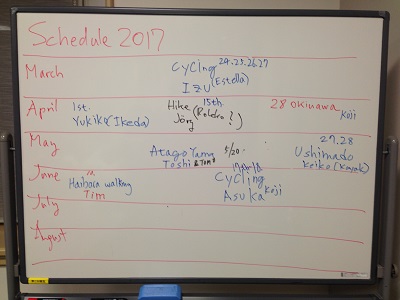 Schedule 2017
March
Cycling 24.25.26.27
Izu (Estella)
April
1st.
Yukiko (Ikeda)
Hike 15th.
Jörg
?
28 Okinawa Koji
May
Atago Yama 5/20-
Toshi & Tom
27.28
Ushimado
Keiko (Kayak)
June
Haibara walking
Tim
Cycling
Asuka Koji
July
August